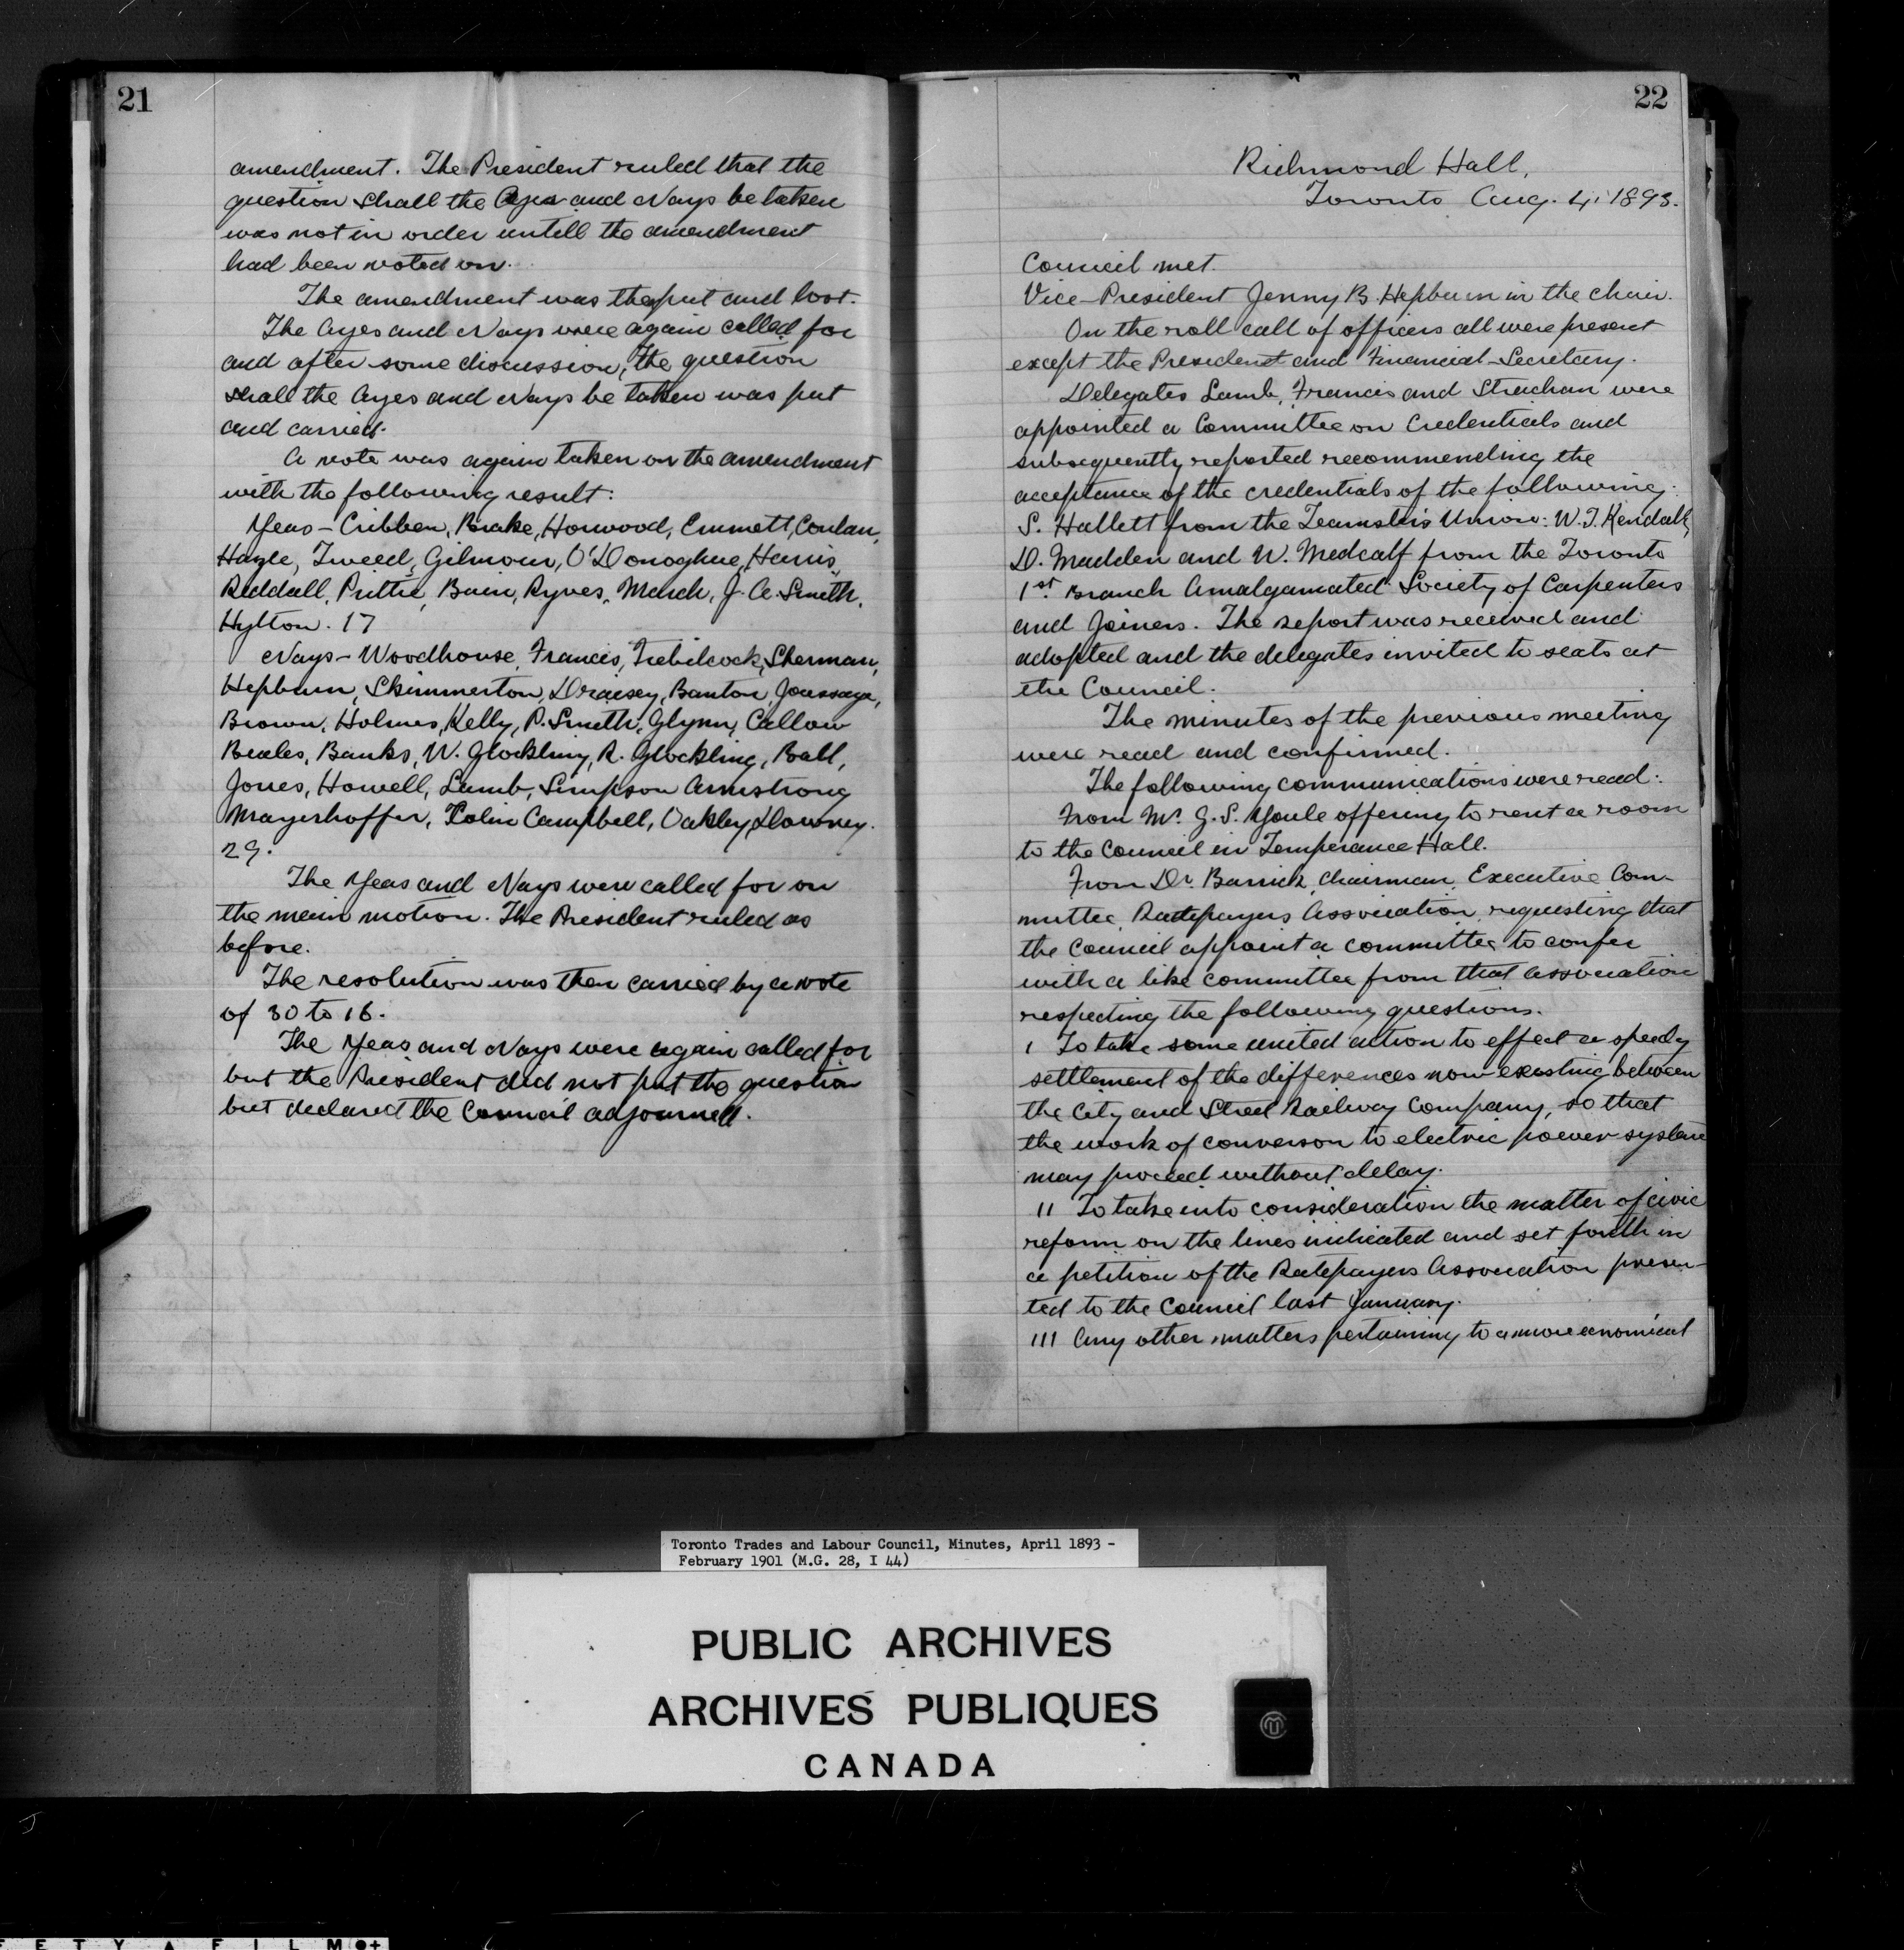 21
amendment. The President ruled that the
question shall the Ayes and Nays be taken
was not in order untill the amendment
had been voted on.
The amendment was then put and lost.
The Ayes and Nays were again called for
and after some discussion, the question
shall the Ayes and Nays be taken was put
and carried.
A vote was again taken on the amendment
with the following result:
Yeas – Cribben, Brake, Horwood, Emmett, Conlan,
Hazle, Tweed, Gilmour, O'Donoghue, Harris,
Reddall, Prittie, Bain, Ryves, March, J. A. Smith,
Hylton. 17
Nays – Woodhouse, Francis, Trebilcock, Sherman,
Hepburn, Skimmerton, Draisey, Banton,
Brown, Holmes, Kelly, P. Smith, Glynn, Callow
Beales, Banks, W. Glockling, R. Glockling, Ball,
Jones, Howell, Lamb, Simpson Armstrong
Mayerhoffer, Colin Campbell, Oakley, Downey.
29.
The Yeas and Nays were called for on
the main motion. The President ruled as
before.
The resolution was then carried by a vote
of 30 to 16.
The Yeas and Nays were again called for
but the President did not put the question
but declared the Council adjourned.
22
Richmond Hall,
Toronto Aug. 4, 1893.
Council met.
Vice-President Jenny B. Hepburn in the chair.
On the roll call of officers all were present
except the President and Financial-Secretary.
Delegates Lamb, Francis and Strachan were
appointed a Committee on Credentials and
subsequently reported recommending the
acceptance of the credentials of the following:
S. Hallett from the Teamsters Union: W. J. Kendall,
D. Madden and W. Medcalf from the Toronto
1st Branch Amalgamated Society of Carpenters
and Joiners. The report was received and
adopted and the delegates invited to seats at
the Council.
The minutes of the previous meeting
were read and confirmed.
The following communications were read:
From Mr. G. S. Youle offering to rent a room
to the Council in Temperance Hall.
From Dr. Barrick, Chairman, Executive Com-
mittee, Ratepayers Association, requesting that
the Council appoint a committee to confer
with a like committee from that association
respecting the following questions.
1 To take some united action to effect a speedy
settlement of the differences now existing between
the City and Street Railway Company, so that
the work of converson to electric power system
may proceed without delay.
11 To take into consideration the matter of civic
reform on the lines indicated and set forth in
a petition of the Ratepayers Association presen-
ted to the Council last January.
111 Any other matters pertaining to a more economical
Toronto Trades and Labour Council, Minutes, April 1893 -
February 1901 (M.G. 28, I 44)
PUBLIC ARCHIVES
ARCHIVES PUBLIQUES
CANADA
E T Y A F I L M